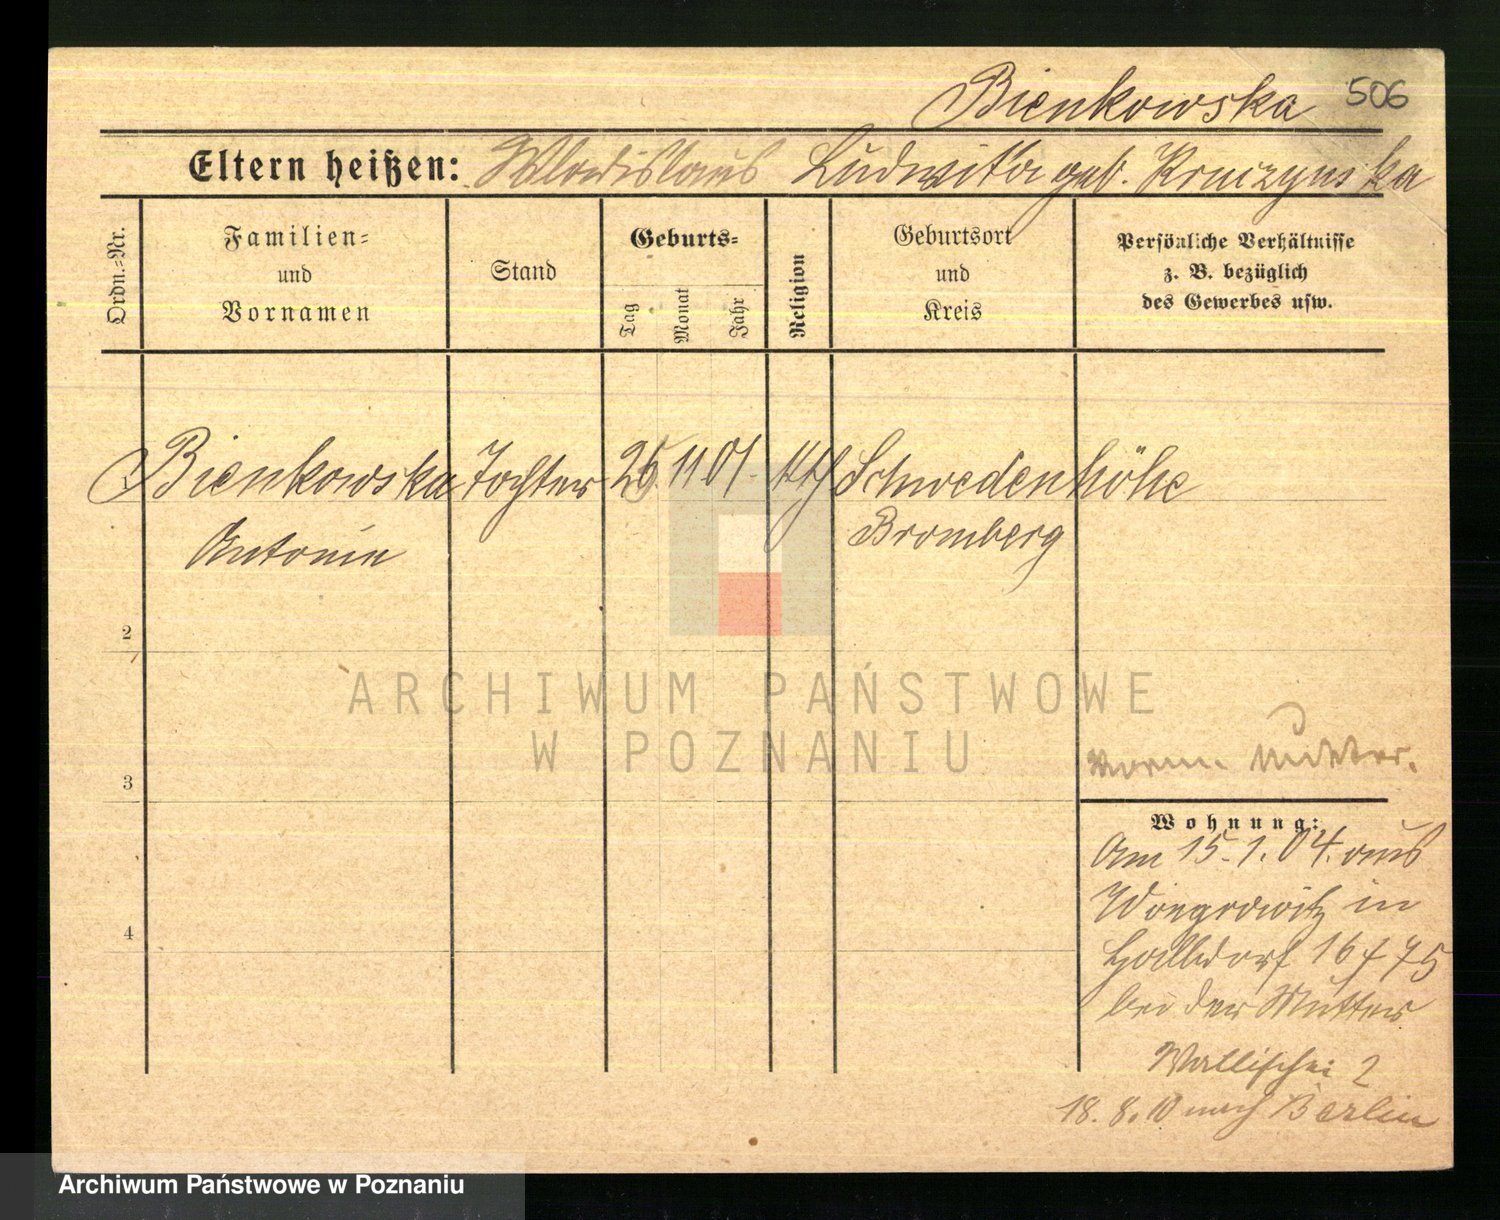 Bienkowska 506
Eltern heißen: Wladislaus Ludwika geb.
Ordn.-Nr.
Familien-
und
Vornamen
Stand
Geburts-
Tag
Monat
Jahr
Religion
Geburtsort
und
Kreis
Persönliche Verhältnisse
z. B. bezüglich
des Gewerbes usw.
1 Bienkowska Tochter 25 11 01. kth Schwedenhöhe
Antonin Bromberg
2
3
Wohnung:
Am 15.1.04. aus
Wongrowitz in
16 f 75
4
bei der Mutter
Wallischei 2
18. 8. 10 nach Berlin
ARCHIWUM PAŃSTWOWE
W POZNANIU
Archiwum Państwowe w Poznaniu